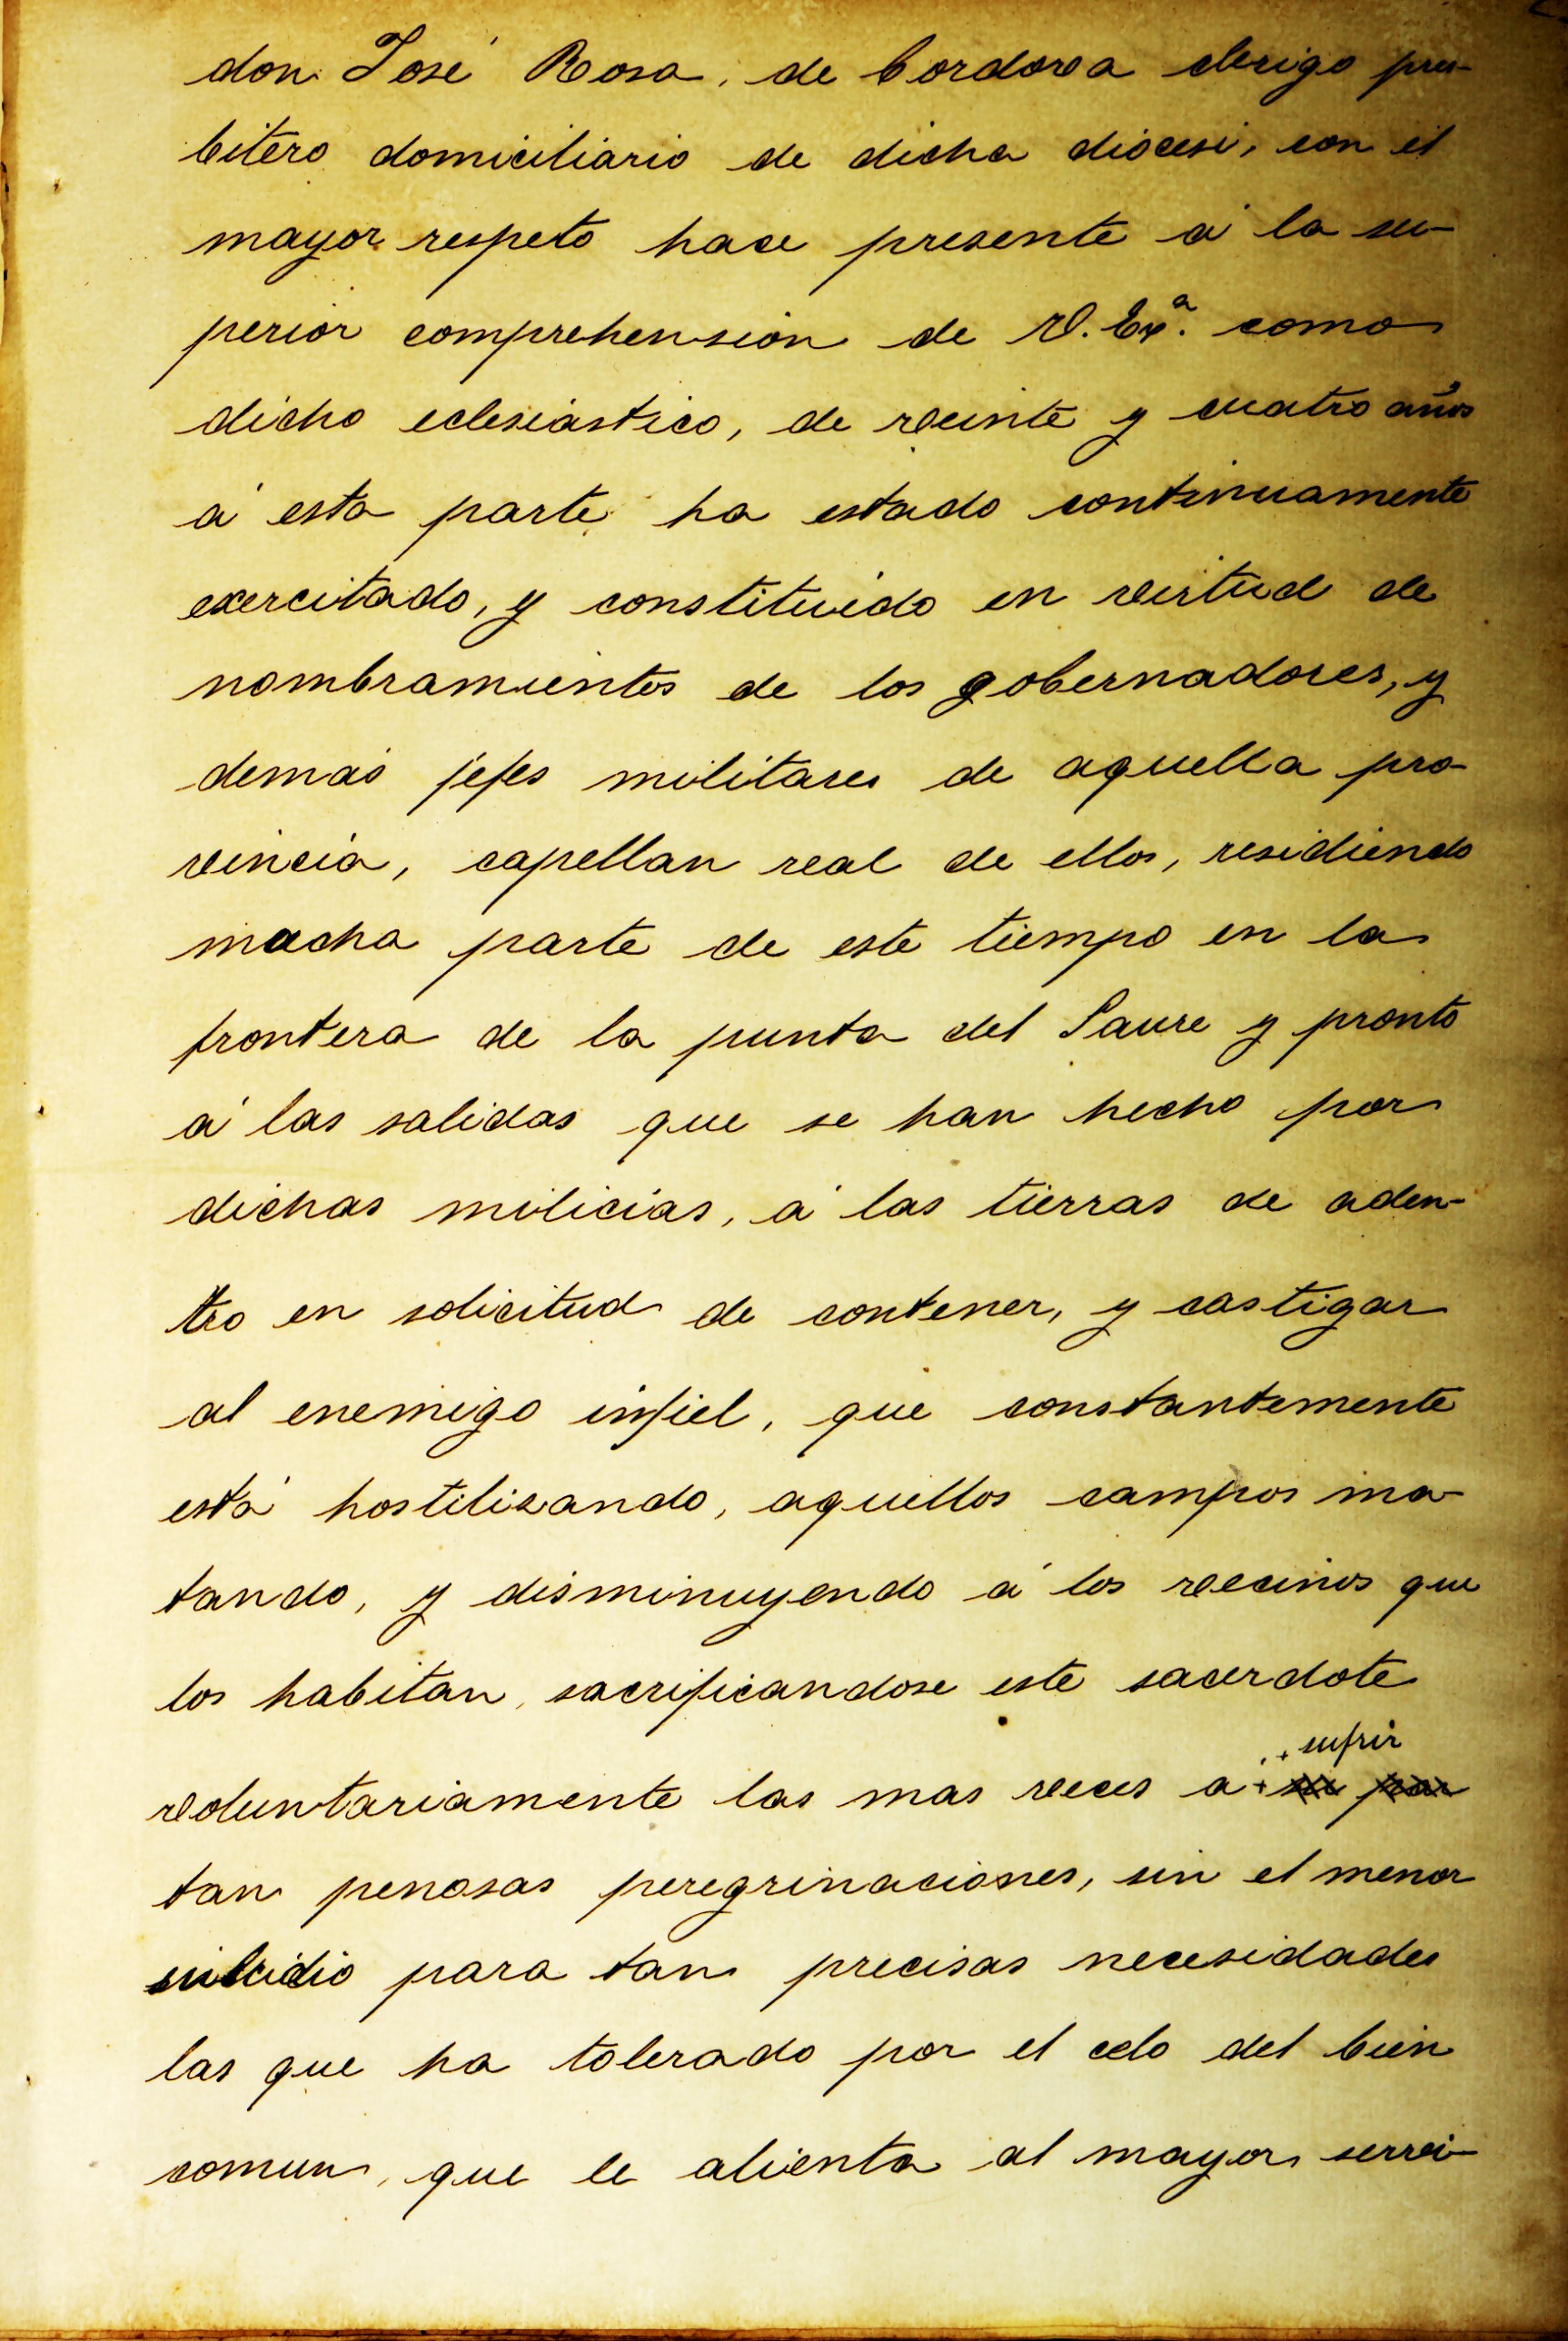 don José Rosa, de Cordova clerigo pres-
bitero domiciliario de dicha diocesi, con el
mayor respeto hace presente á la su-
perior comprehension de V. Exª. como
dicho eclesiástico, de veinte y cuatro años
á esta parte ha estado continuamente
exercitado, y constituido en virtud de
nombramientos de los gobernadores, y
demás jefes militares de aquella pro-
vincia, capellan real de ellos, residiendo
mucha parte de este tiempo en la
frontera de la punta del Sauce y pronto
á las salidas que se han hecho por
dichas milicias, á las tierras de aden-
tro en solicitud de contener, y castigar
al enemigo infiel, que constantemente
está hostilizando, aquellos campos ma-
tando, y disminuyendo á los vecinos que
los habitan, sacrificandose este sacerdote
sufrir
voluntariamente las mas veces a + su par
tan penosas peregrinaciones, sin el menor
subcidio para tan precisas necesidades
las que ha tolerado por el celo del bien
comun, que le alienta al mayor servi-